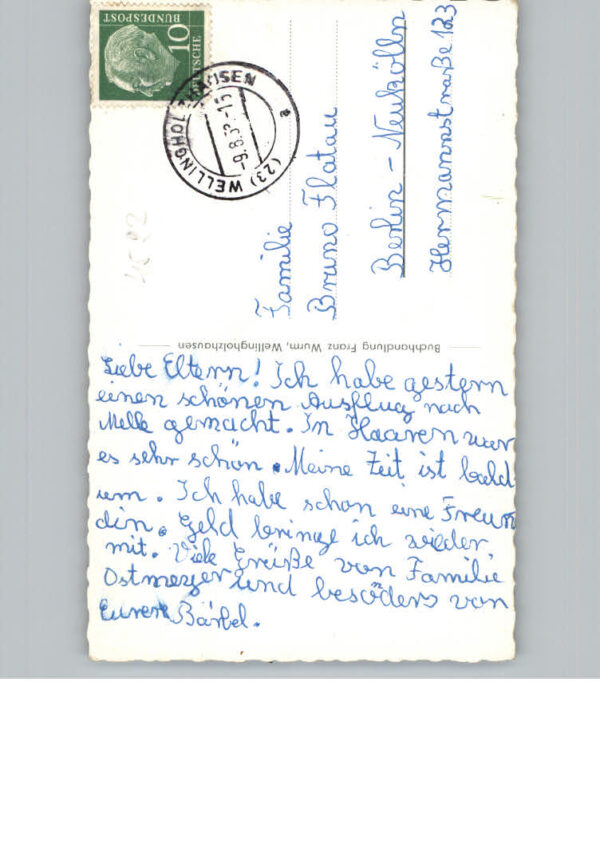 DEUTSCHE
BUNDESPOST
10
(23) WELLINGHOLZHAUSEN
Familie
Bruno Flatau
Berlin - Neukölln
Hermannstraße 123
Buchhandlung Franz Wurm, Wellingholzhausen
Liebe Eltern! Ich habe gestern
einen schönen Ausflug nach
Melle gemacht. In Haaren war
es sehr schön. Meine Zeit ist bald
um. Ich habe schon eine Freun
din. Geld bringe ich wieder
mit. Viele Grüße von Familie
Ostmeyer und besoders von
Eurer Bärbel.